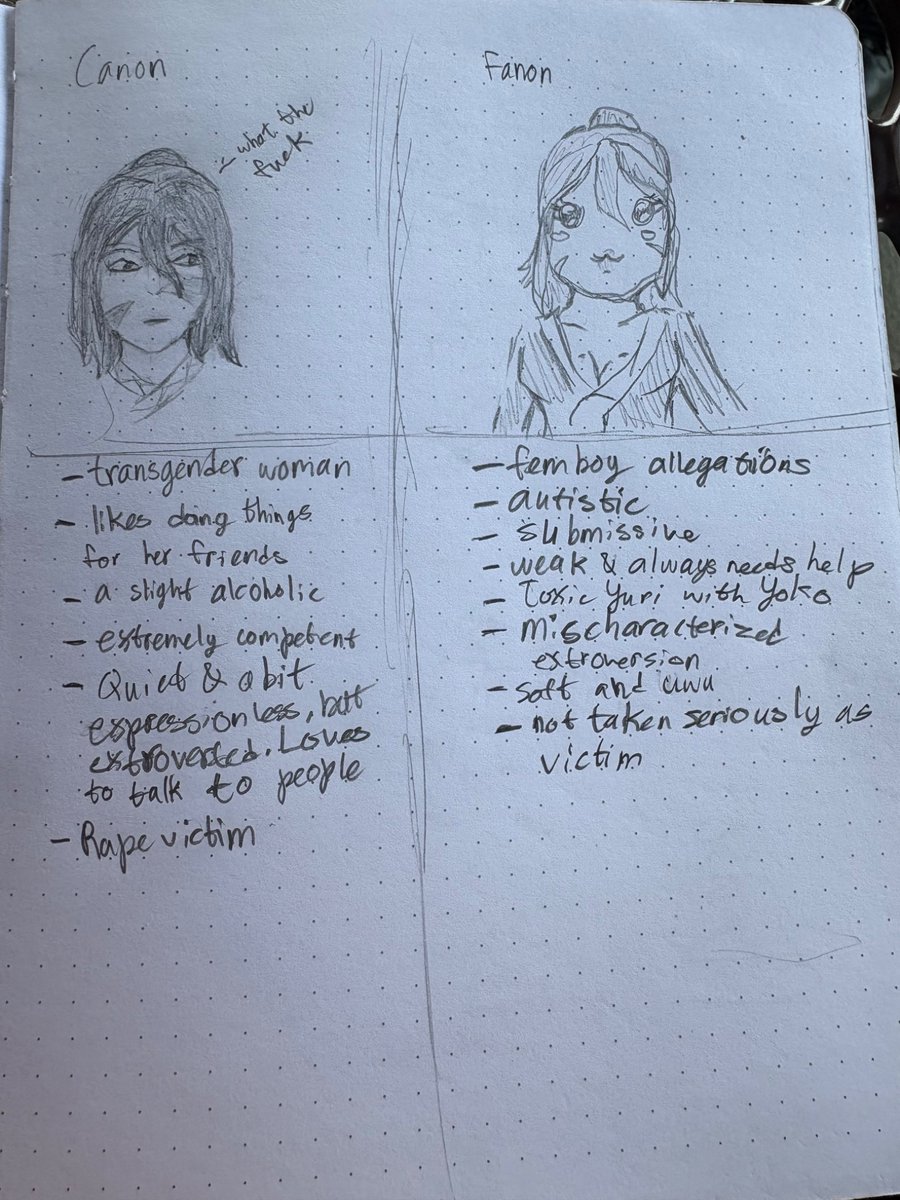 Canon
- what the
fuck
- transgender woman
- likes doing things
for her friends
- a slight alcoholic
- extremely competent
- Quiet & a bit
expressionless, but
extroverted. Loves
to talk to people
- Rape victim
Fanon
- femboy allegations
- autistic
- submissive
- weak & always needs help
- Toxic Yuri with Yoko
- Mischaracterized
extroversion
- soft and uwu
- not taken seriously as
victim